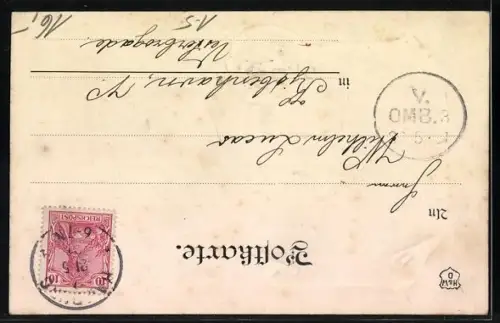 Postkarte.
An
Herrn
Wilhelm Lucas
in Kjøbenhavn, V
Vesterbrogade.
1-5
16,-
V.
OMB. 3
REICHSPOST
10 10
6-7 N.